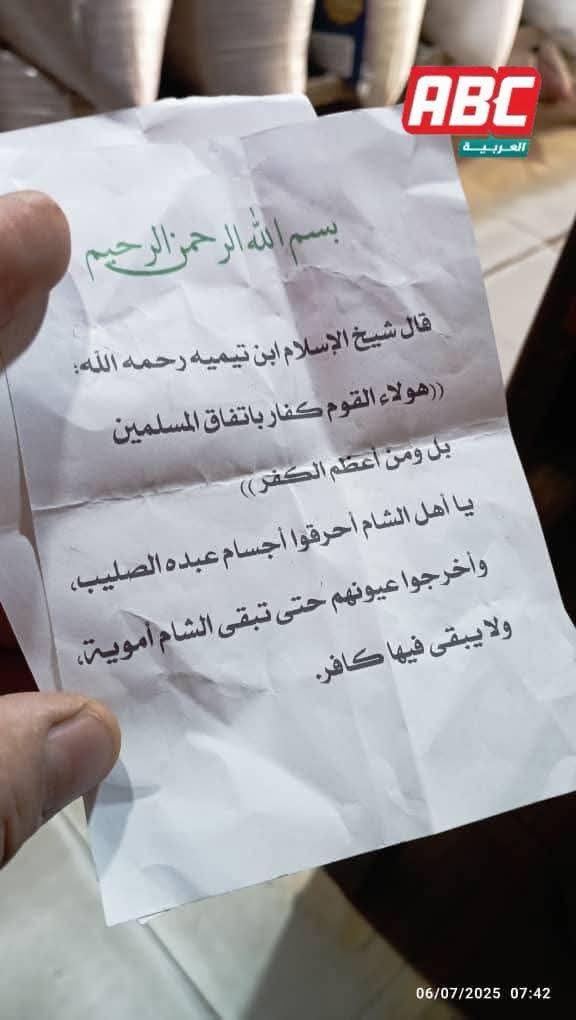 ABC
العربية
بسم الله الرحمن الرحيم
قال شيخ الإسلام ابن تيميه رحمه الله:
((هولاء القوم كفار باتفاق المسلمين
بل ومن أعظم الكفر))
يا أهل الشام أحرقوا أجسام عبده الصليب،
وأخرجوا عيونهم حتى تبقى الشام أموية،
ولا يبقى فيها كافر.
06/07/2025 07:42